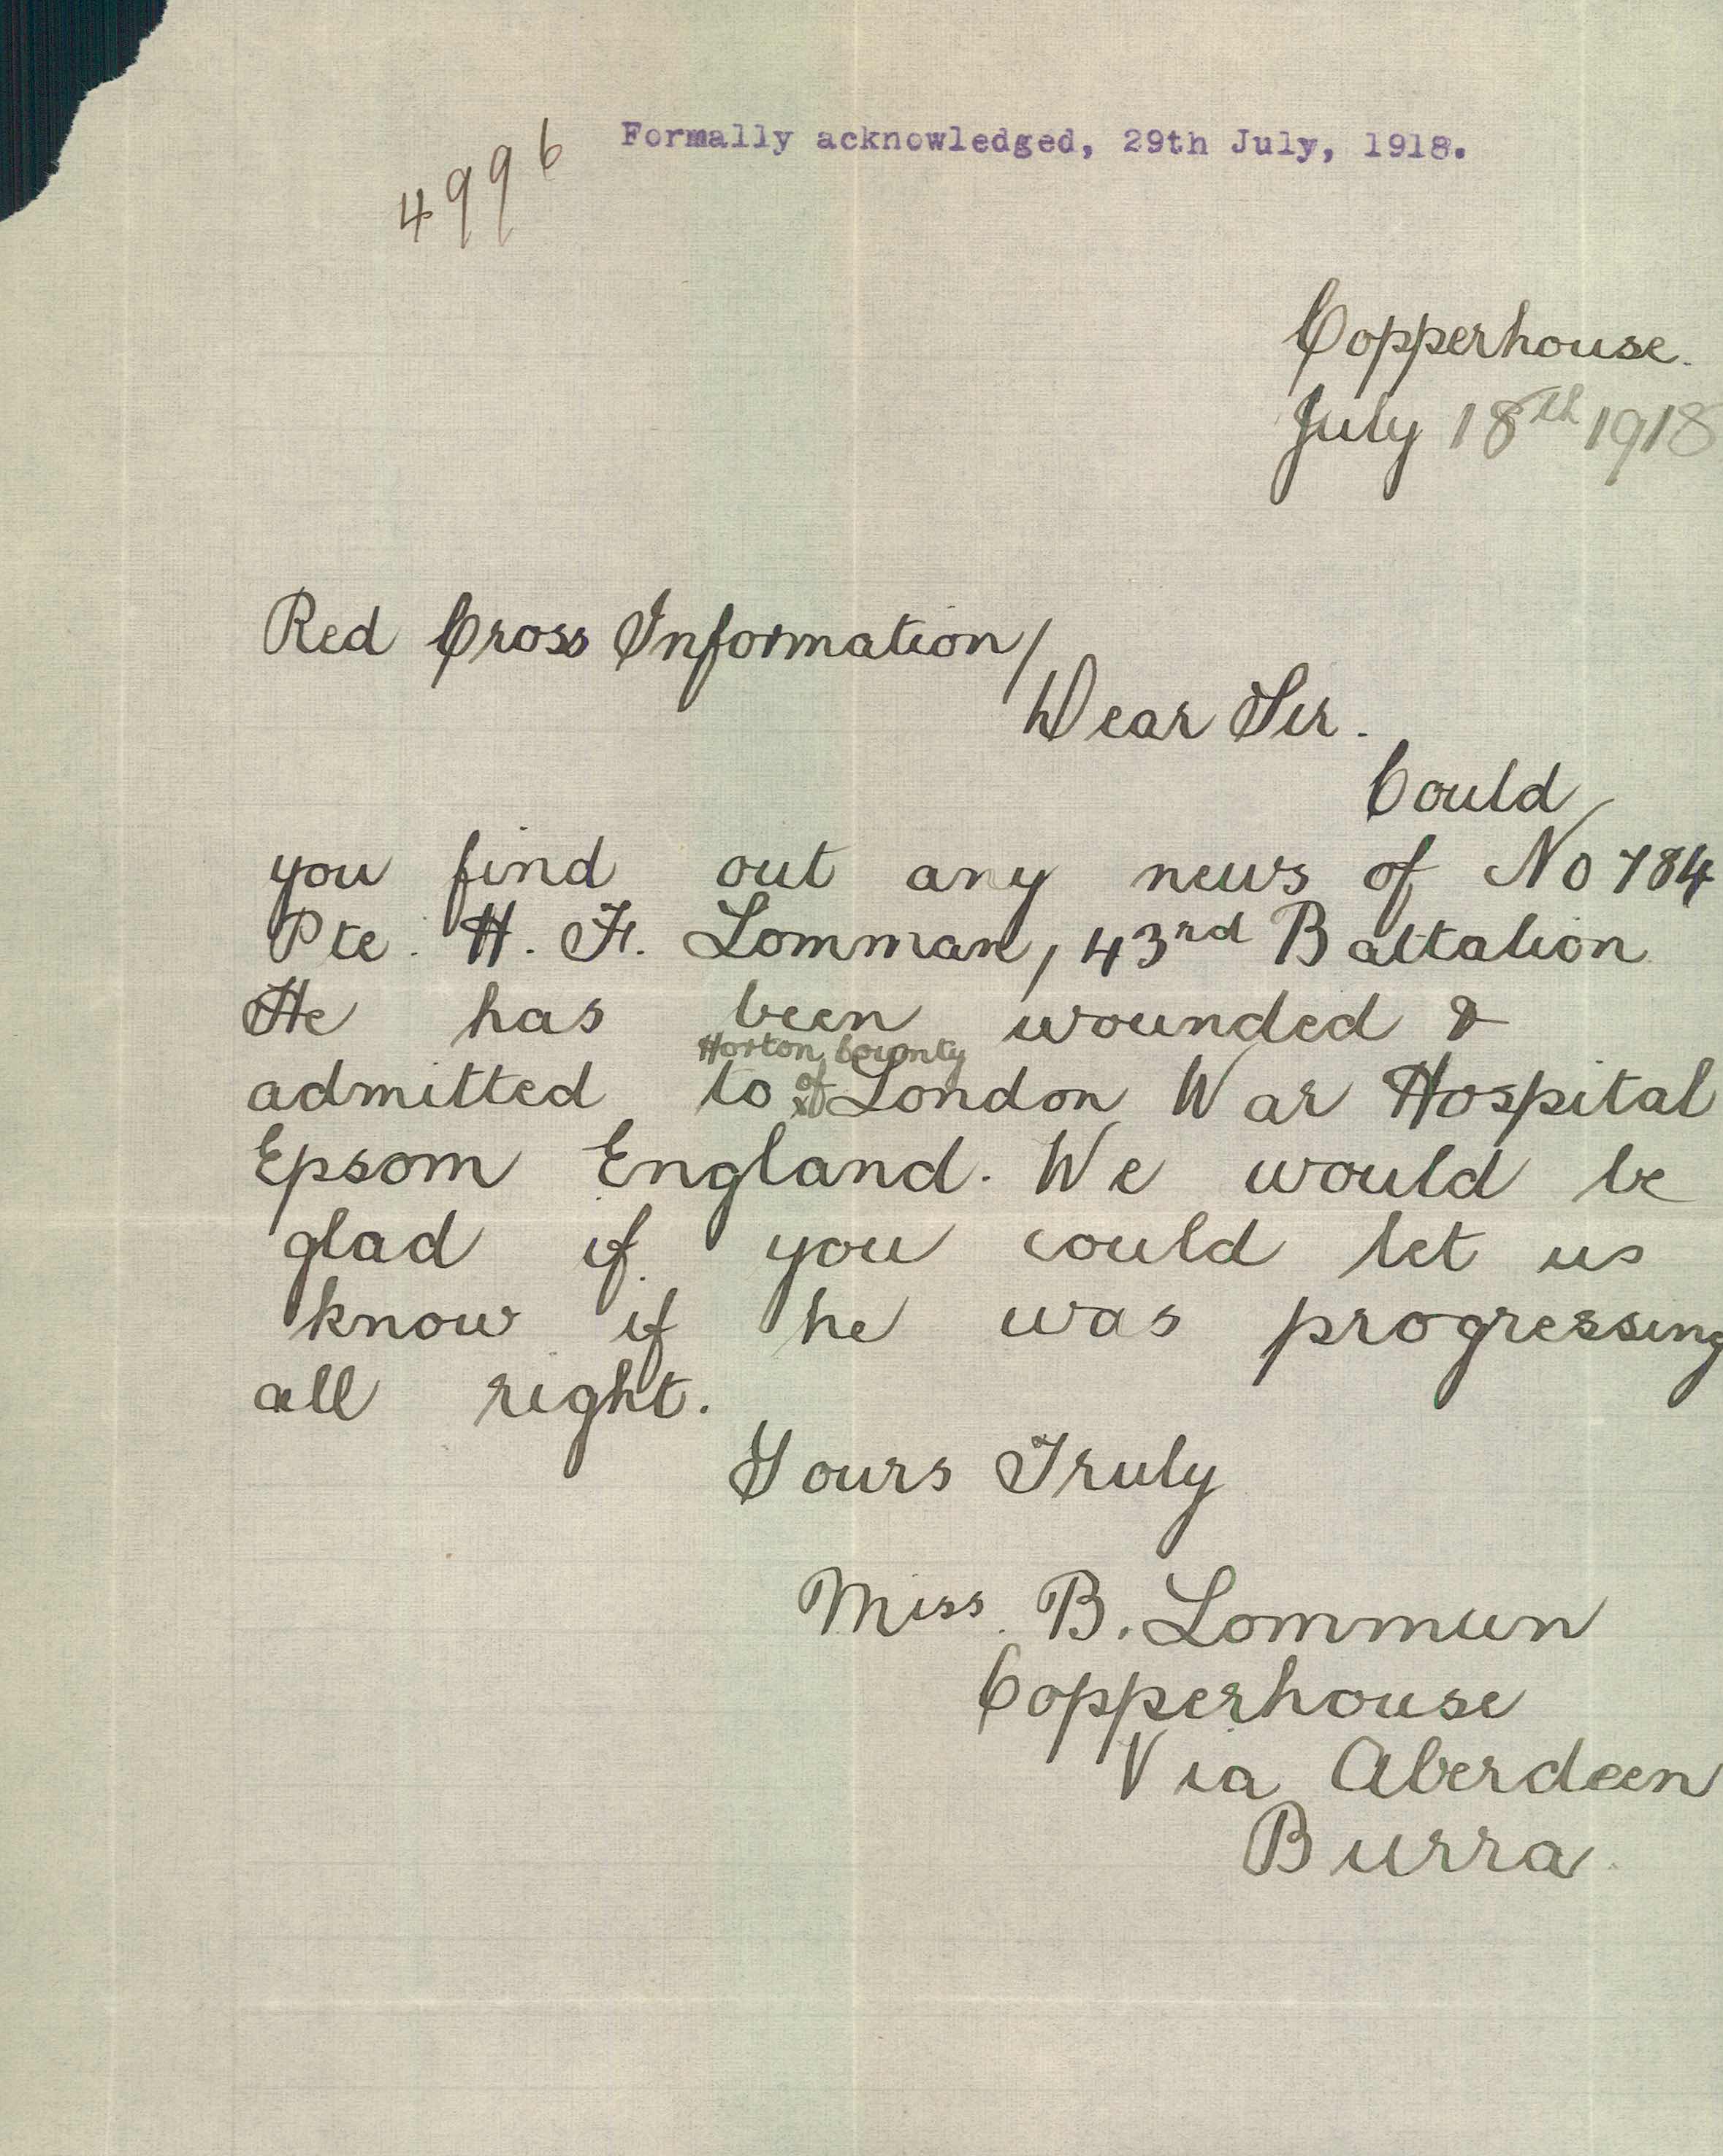 4996
Formally acknowledged, 29th July, 1918.
Copperhouse.
July 18th 1918
Red Cross Information/
Dear Sir.
Could
you find out any news of No 784
Pte. H. F. Lomman, 43rd Battalion
He has been wounded &
Horton County
admitted to of London War Hospital
Epsom England. We would be
glad if you could let us
know if he was progressing
all right.
Yours Truly
Miss. B. Lommun
Copperhouse
Via Aberdeen
Burra.